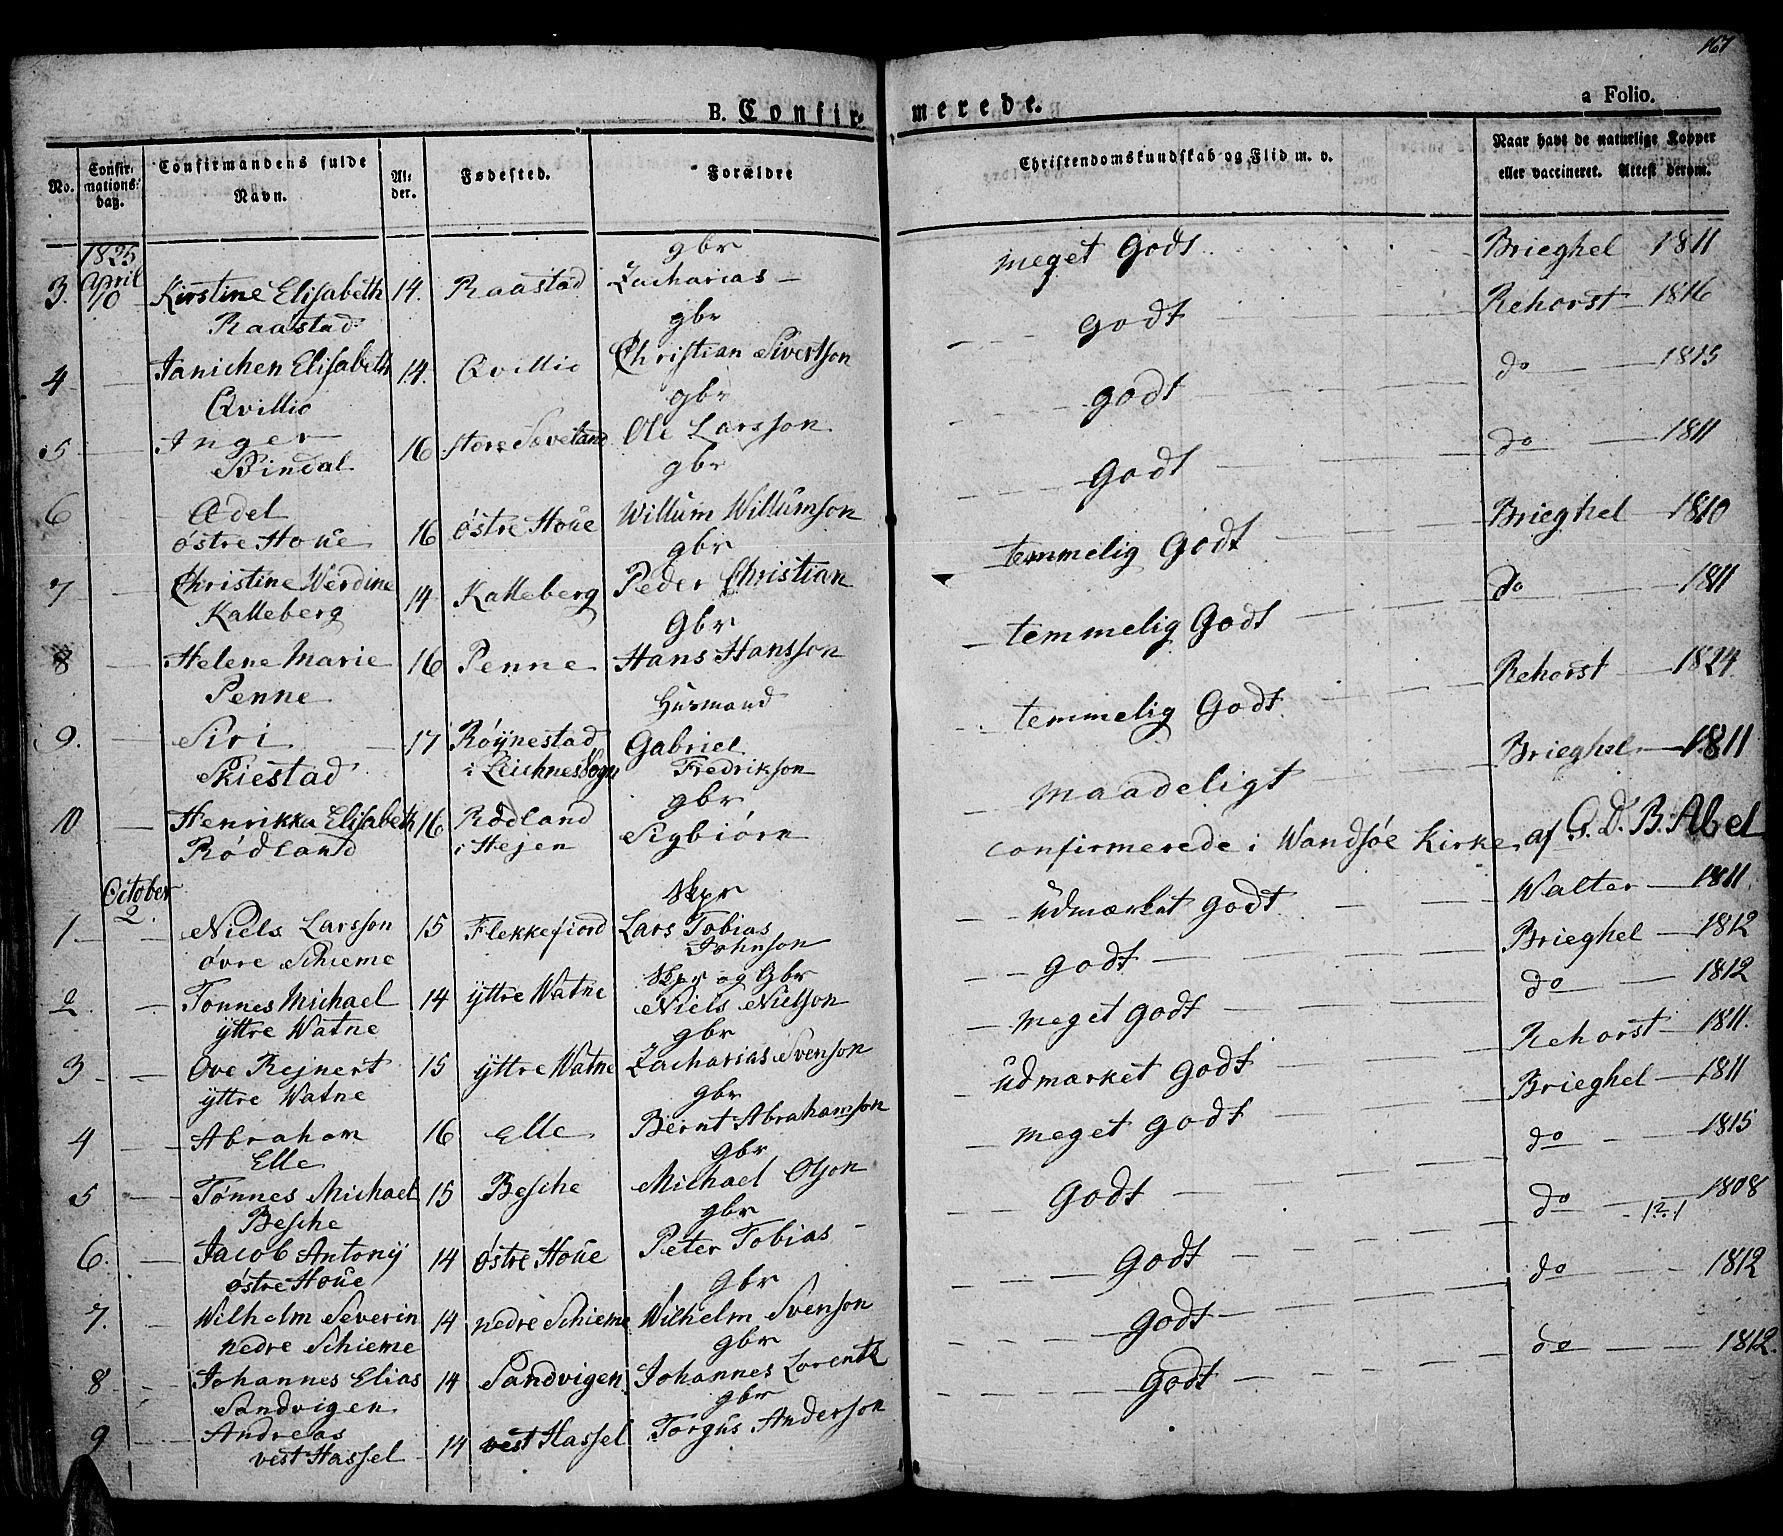 167
B. Confirmerede.
a Folio.
No. Confirmations: dag. Confirmandens fulde Navn. Alder. Fødested. Forældre Christendomskundskab og Flid m. v. Naar havt de naturlige Kopper eller vaccineret. Attest derom.
1825 gbr
3. April 10 Kirstine Elisabeth 14. Raastad Zacharias — meget Godt Brieghel 1811
Raastad gbr
4 — Janichen Elisabeth 14. Qvillio Christian Sivertson — godt — Rehorst 1816
Qvillio gbr
5 — Inger 16 store Søveland Ole Larsson — godt — do — 1815
Bindal gbr
6 — Ædel 16 østre Houe Willum Willumson — godt — do — 1811
østre Houe gbr
7 — Christine Werdine 14 Kalleberg Peder Christian temmelig Godt — Brieghel — 1810
Kalleberg Gbr
8 — Helene Marie 16 Penne Hans Hansson — temmelig Godt — do — 1811
Penne Husmand
9. — Siri — 17 Røÿnestad Gabriel temmelig Godt — Rehorst — 1824.
Skiestad i Leichnes Sogn Fredrikson
gbr
10 — Henrikka Elisabeth 16 Rødland Sigbiørn — maadeligt Brieghel — 1811
Rødland i Hejen
confirmerede i Wandsøe Kirke af G. D. B. Abel
October 2. Skpr
1 — Niels Larsson 15 Flekkefiord Lars Tobias — udmærket godt — Walter — 1811.
øvre Schieme Johnson
Skpr og Gbr
2. — Tønnes Michael 14 ÿttre Watne Niels Nielson — godt — Brieghel — 1812
ÿttre Watne gbr
3 — Ove Rejnert 15 ÿttre Watne Zacharias Svenson — meget godt — do — 1812
ÿttre Watne gbr
4 — Abraham 16 Elle Bernt Abrahamson — udmærket godt — Rehorst — 1811.
Elle gbr
5 — Tønnes Michael 15 Besche Michael Olson — meget godt — Brieghel — 1811
Besche gbr
6. — Jacob Antonÿ 14 østre Houe Peter Tobias — Godt — do — 1815
østre Houe Gbr
7. — Wilhelm Severin 14 nedre Schieme Wilhelm Svenson — Godt — do — 1808
nedre Schieme gbr
8 — Johannes Elias 14 Sandvigen Johannes Lorentz — Godt — do — 1812
Sandvigen gbr
9 — Andreas 14 vest Hassel Torgus Anderson — Godt do — 1812.
vest Hassel